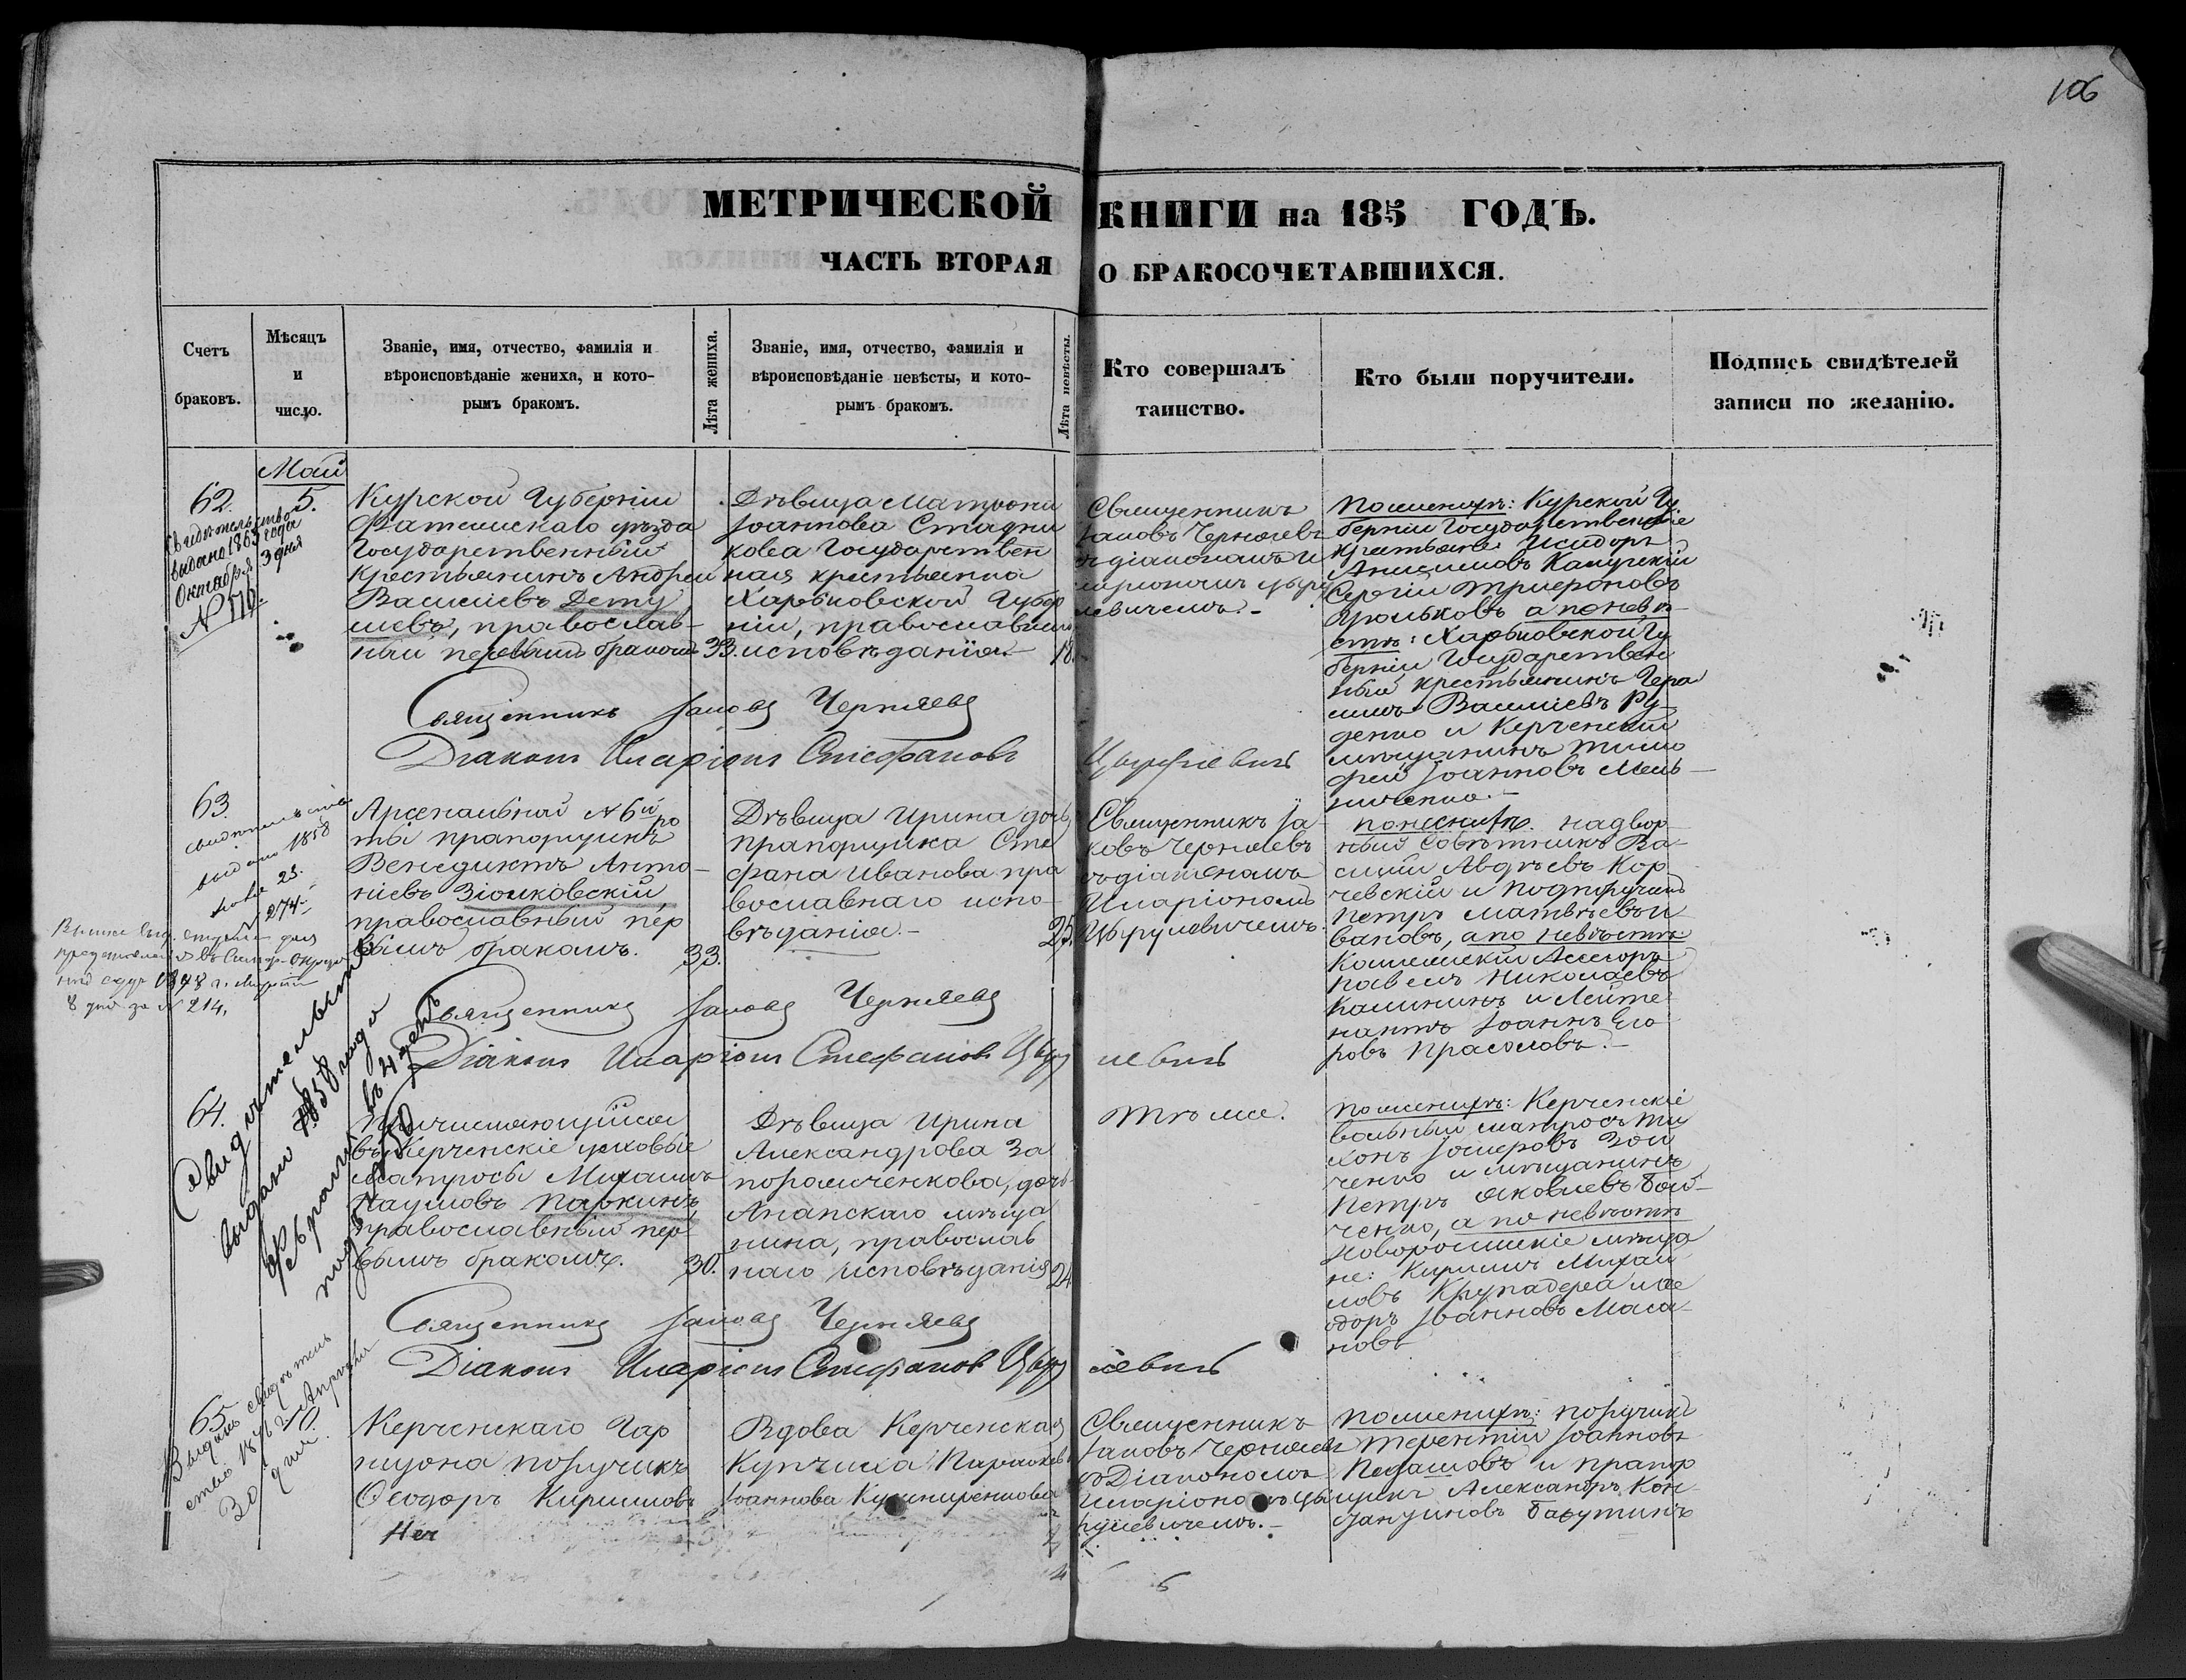 106
МЕТРИЧЕСКОЙ КНИГИ на 185 ГОДЪ.
ЧАСТЬ ВТОРАЯ О БРАКОСОЧЕТАВШИХСЯ.
Счетъ
браковъ.
Мѣсяцъ
и
число.
Званіе, имя, отчество, фамилія и
вѣроисповѣданіе жениха, и кото-
рымъ бракомъ.
Лѣта жениха.
Званіе, имя, отчество, фамилія и
вѣроисповѣданіе невѣсты, и кото-
рымъ бракомъ.
Лѣта невѣсты.
Кто совершалъ
таинство.
Кто были поручители.
Подпись свидѣтелей
записи по желанію.
Май
62.
5.
Свидѣтельство
выдано 1863 года
Октября 3 дня
Курской Губерніи
Фатежскаго уѣзда
Государственный
крестьянинъ Андрей
Васильевъ
православ-
ный первымъ бракомъ
33.
Дѣвица Матрона
Іоаннова Стадни
кова Государствен
ная крестьянка
Харьковской Губер
ніи, православнаго
исповѣданія.
18.
Священникъ
Іаковъ Черняевъ
съ діакономъ И
ларіономъ Цыру
левичемъ.-
По женихѣ: Курской Гу
берніи Государственные
крестьяне Исидоръ
Сергій Трифоновъ
а по невѣ-
стѣ: Харьковской Гу
берніи Государствен
ный крестьянинъ Гера
симъ Васильевъ Ру
денко и Керченскій
мѣщанинъ Тимо
фей Іоанновъ Мель-
ниченко.-
Священникъ Іаковъ Черняевъ
Діаконъ Иларіонъ Стефановъ Цырулевичъ
63.
свидѣтельство
выдано 1858
23.
№ 274.
8 дня за № 214.
Арсенальной № 6й ро
ты прапорщикъ
Венедиктъ Анто-
ніевъ Зіомковскій
православный пер
вымъ бракомъ.
33.
Дѣвица Ирина дочь
прапорщика Сте
фана Иванова пра
вославнаго испо-
вѣданія.-
25.
Священникъ Іа-
ковъ Черняевъ
съ діакономъ
Иларіономъ
Цырулевичемъ.
По женихѣ: надвор
ный Совѣтникъ Ва-
силій Авдѣевъ Кор
чевскій и Подпоручикъ
Петръ Матвѣевъ И-
вановъ, а по невѣстѣ
Коллежскій Ассесоръ
Павелъ Николаевъ
Калининъ и Лейте
нантъ Іоаннъ Его
ровъ Прасоловъ.-
Священникъ Іаковъ Черняевъ
Діаконъ Иларіонъ Стефановъ Цырулевичъ
64.
Свидѣтельство
выдано 1858 года
Февраля въ 4 день
Причисляющійся
въ Керченскіе
матросы Михаилъ
Наумовъ Паркинъ
православный пер
вымъ бракомъ.
30.
Дѣвица Ирина
Александрова За
порожченкова, дочь
Анапскаго мѣща
нина, православ
наго исповѣданія
24.
Тѣ же.
По женихѣ: Керченскіе
вольный матросъ Ти
хонъ
ченко и мѣщанинъ
Петръ Яковлевъ Бой-
ченко, а по невѣстѣ
Новороссійскіе мѣща
не: Кириллъ Михай
ловъ и Ѳе
одоръ Іоанновъ Маса-
новъ
Священникъ Іаковъ Черняевъ
Діаконъ Иларіонъ Стефановъ Цырулевичъ
65.
10.
Выдано свидѣтель
ство Апрѣля
30 дня.
Керченскаго Гар
низона поручикъ
Ѳеодоръ Кирилловъ
Вдова Керченская
Купчиха Параскева
Іоаннова
Священникъ
Іаковъ Черняевъ
съ Діакономъ
Иларіономъ Цы
рулевичемъ.-
По женихѣ: поручикъ
Терентій Іоанновъ
и прапор
щикъ Александръ Кон-